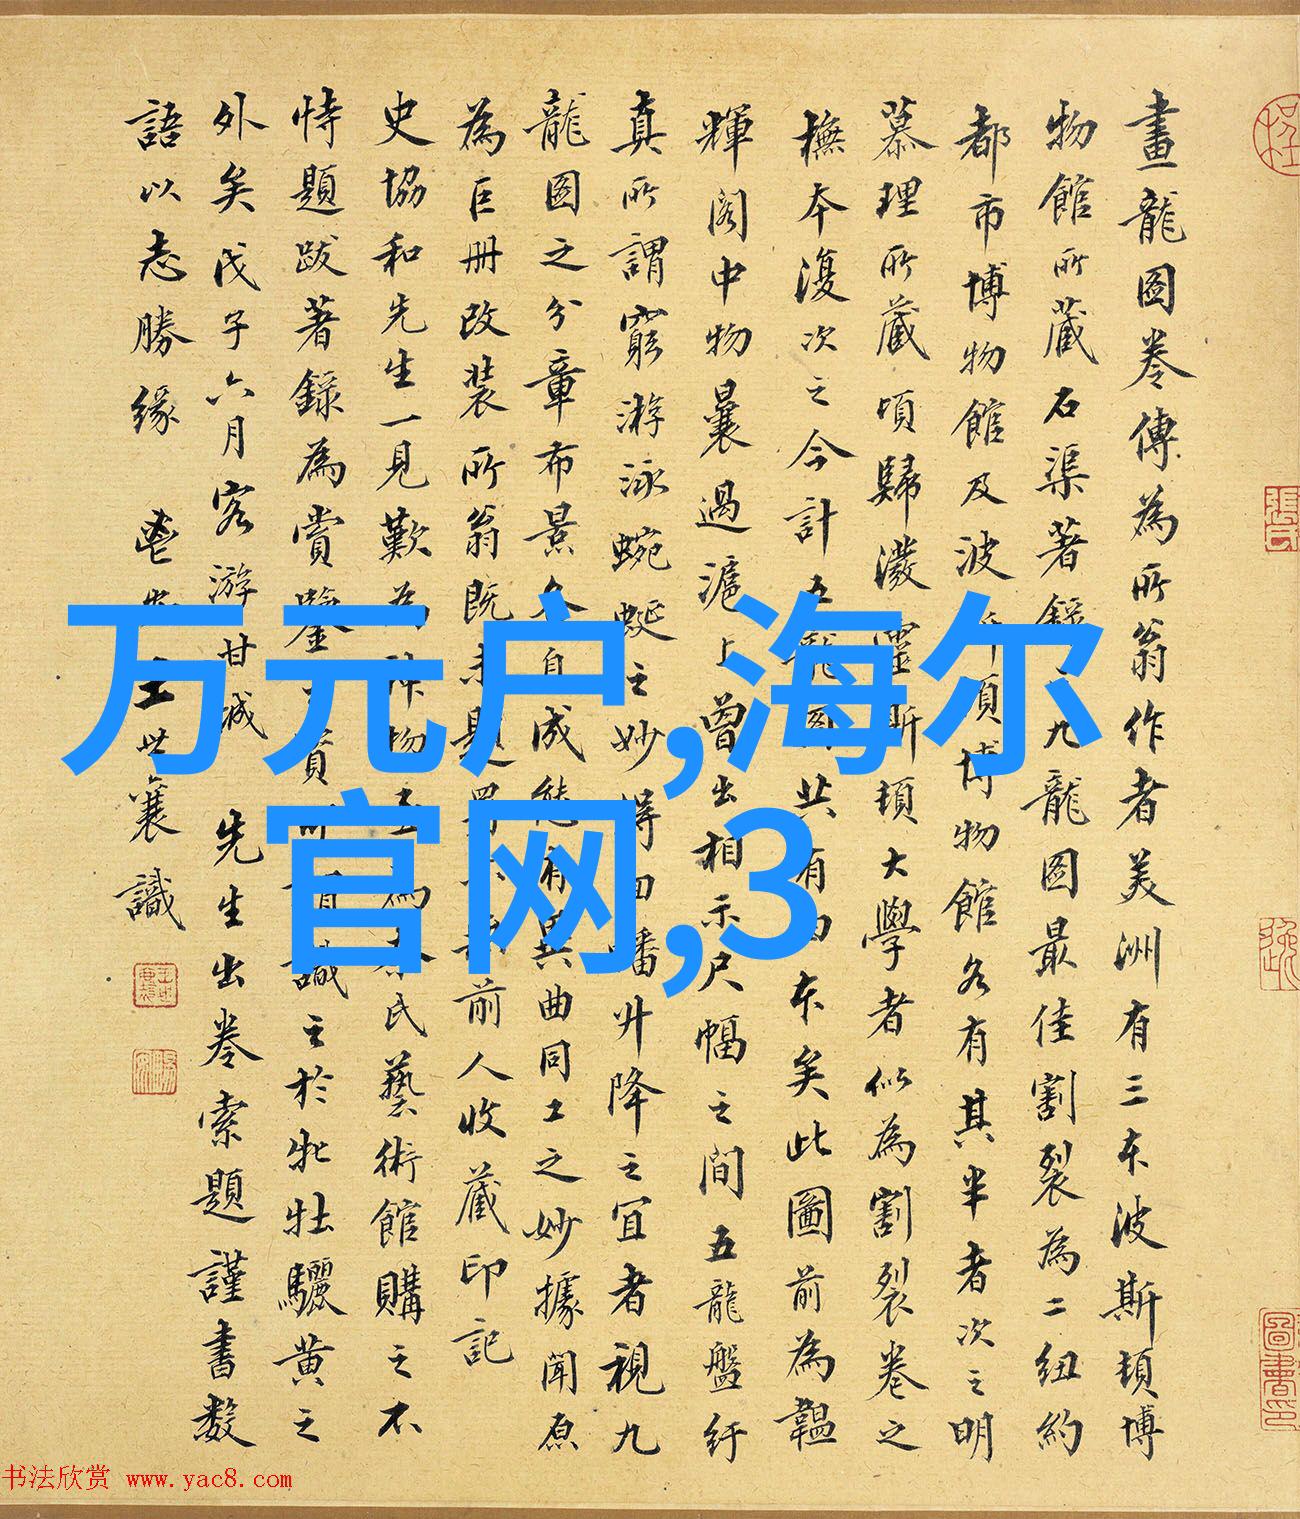 畫龍圖卷傳為所翁作者美洲有三本波斯頓博
物館所藏石渠著錄九龍圖最佳割裂為二紐約
都市博物館及波斯頓博物館各有其半者次之明
慕理所藏頃歸瀲靈斯頓大學者似為割裂卷之
橅本復次之今計五龍圖共有四本矣此圖前為韞
輝閣中物曩過滬上曾出相示尺幅之間五龍盤紆
真所謂窮游泳蜿蜒之妙得回蟠升降之宜者視九
龍圖之分章布景各自成徒有異曲同工之妙據聞原
為巨冊改裝所翁既未題署前人收藏印記
史協和先生一見歎為神物為本氏藝術館購之不
恃題跋著錄為賞鑒賞識之於牝牡驪黃之
外矣戊子六月客游甘誠先生出卷索題謹書數
語以志勝緣 王世襄識
万元户,海尔
官网,3
张氏
圖書印
书法欣赏 www.yac8.com